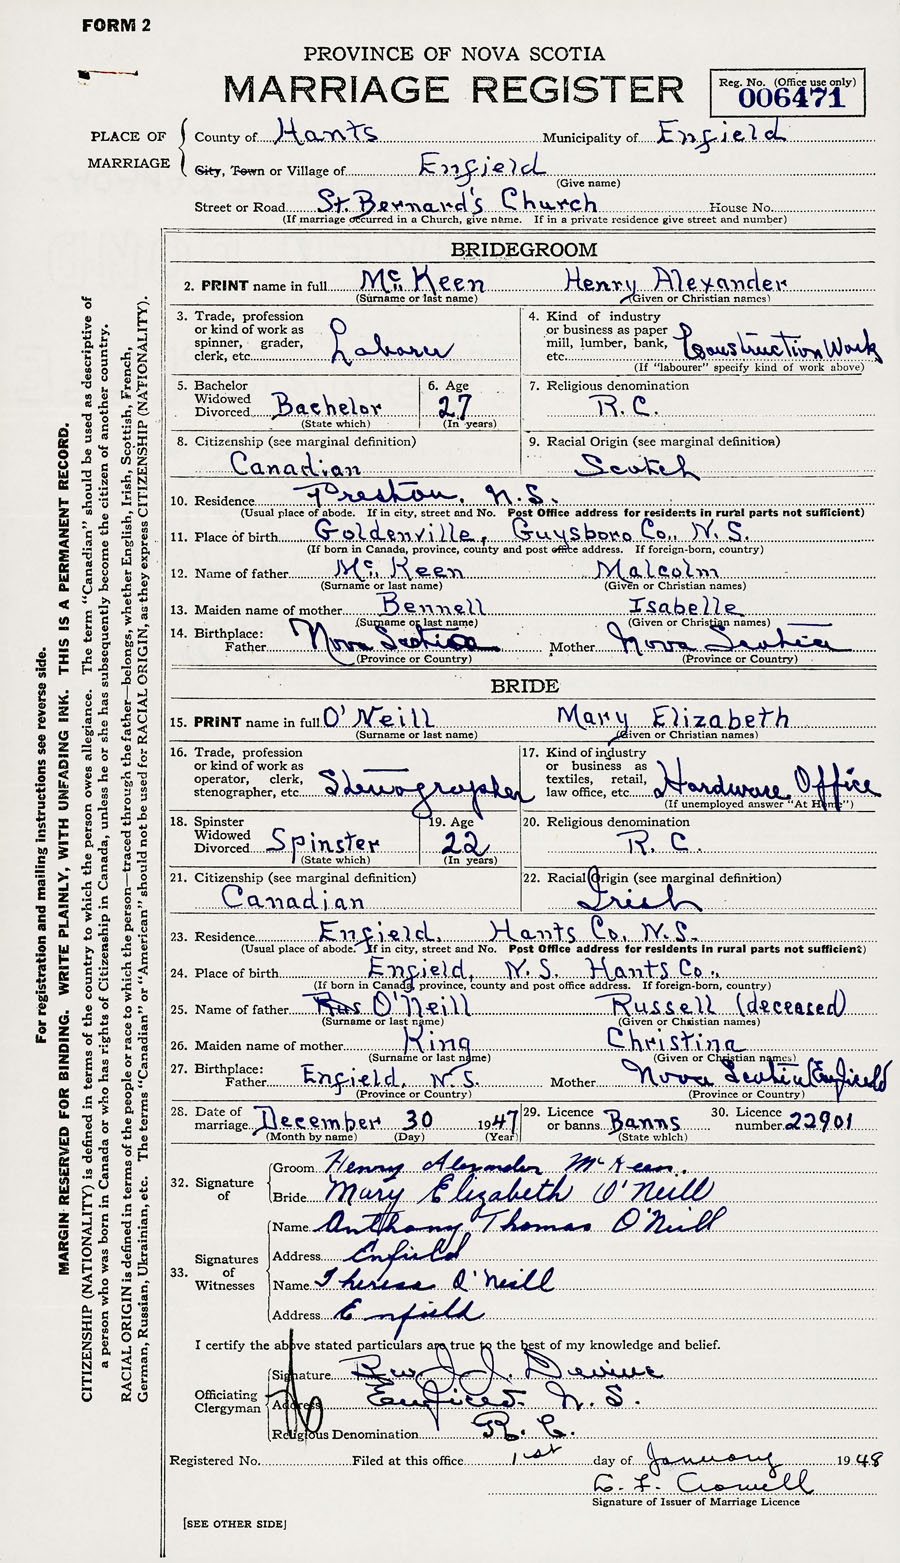 FORM 2
PROVINCE OF NOVA SCOTIA
MARRIAGE REGISTER
Reg. No. (Office use only)
006471
PLACE OF MARRIAGE
County of Hants Municipality of Enfield
City, Town or Village of Enfield
(Give name)
Street or Road St. Bernard's Church House No.
(If marriage occurred in a Church, give name. If in a private residence give street and number)
BRIDEGROOM
2. PRINT name in full McKeen Henry Alexander
(Surname or last name) (Given or Christian names)
3. Trade, profession
or kind of work as
spinner, grader,
clerk, etc. Laborer
4. Kind of industry
or business as paper
mill, lumber, bank,
etc. Construction Work
(If "labourer" specify kind of work above)
5. Bachelor
Widowed
Divorced Bachelor
(State which)
6. Age
27
(In years)
7. Religious denomination
R.C.
8. Citizenship (see marginal definition)
Canadian
9. Racial Origin (see marginal definition)
Scotch
10. Residence Preston, N.S.
(Usual place of abode. If in city, street and No. Post Office address for residents in rural parts not sufficient)
11. Place of birth Goldenville, Guysboro Co., N.S.
(If born in Canada, province, county and post office address. If foreign-born, country)
12. Name of father McKeen Malcolm
(Surname or last name) (Given or Christian names)
13. Maiden name of mother Bennell Isabelle
(Surname or last name) (Given or Christian names)
14. Birthplace:
Father Nova Scotia Mother Nova Scotia
(Province or Country) (Province or Country)
BRIDE
15. PRINT name in full O'Neill Mary Elizabeth
(Surname or last name) (Given or Christian names)
16. Trade, profession
or kind of work as
operator, clerk,
stenographer, etc. Stenographer
17. Kind of industry
or business as
textiles, retail,
law office, etc. Hardware Office
(If unemployed answer "At Home")
18. Spinster
Widowed
Divorced Spinster
(State which)
19. Age
22
(In years)
20. Religious denomination
R. C.
21. Citizenship (see marginal definition)
Canadian
22. Racial Origin (see marginal definition)
Irish
23. Residence Enfield, Hants Co. N.S.
(Usual place of abode. If in city, street and No. Post Office address for residents in rural parts not sufficient)
24. Place of birth Enfield, N.S. Hants Co.,
(If born in Canada, province, county and post office address. If foreign-born, country)
25. Name of father O'Neill Russell (deceased)
(Surname or last name) (Given or Christian names)
26. Maiden name of mother King Christina
(Surname or last name) (Given or Christian names)
27. Birthplace:
Father Enfield, N.S. Mother Nova Scotia (Enfield
(Province or Country) (Province or Country)
28. Date of
marriage December 30 1947
(Month by name) (Day) (Year)
29. Licence
or banns Banns
(State which)
30. Licence
number 22901
32. Signature of
Groom Henry Alexander McKeen.
Bride Mary Elizabeth O'Neill
33. Signatures of Witnesses
Name Anthony Thomas O'Neill
Address Enfield
Name Theresa O'Neill
Address Enfield
I certify the above stated particulars are true to the best of my knowledge and belief.
Officiating Clergyman
Signature Rev. J. J. Devine
Address Enfield. N. S.
Religious Denomination R. C.
Registered No. Filed at this office 1st day of January 1948
Crowell
Signature of Issuer of Marriage Licence
[SEE OTHER SIDE]
For registration and mailing instructions see reverse side.
MARGIN RESERVED FOR BINDING. WRITE PLAINLY, WITH UNFADING INK. THIS IS A PERMANENT RECORD.
CITIZENSHIP (NATIONALITY) is defined in terms of the country to which the person owes allegiance. The term "Canadian" should be used as descriptive of
a person who was born in Canada or who has rights of Citizenship in Canada, unless he or she has subsequently become the citizen of another country.
RACIAL ORIGIN is defined in terms of the people or race to which the person—traced through the father—belongs, whether English, Irish, Scottish, French,
German, Russian, Ukrainian, etc. The terms "Canadian" or "American" should not be used for RACIAL ORIGIN, as they express CITIZENSHIP (NATIONALITY).